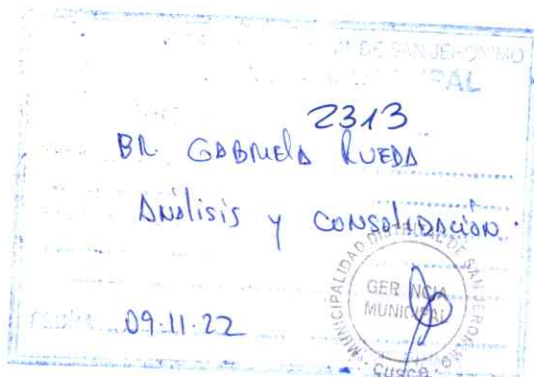 DE SAN JERONIMO
2313
BR. GABRIELA RUEDA
Análisis y CONSOLIDACIÓN.
MUNICIPALIDAD DISTRITAL DE SAN JERONIMO
GERENCIA
MUNICIPAL
CUSCO
09-11-22